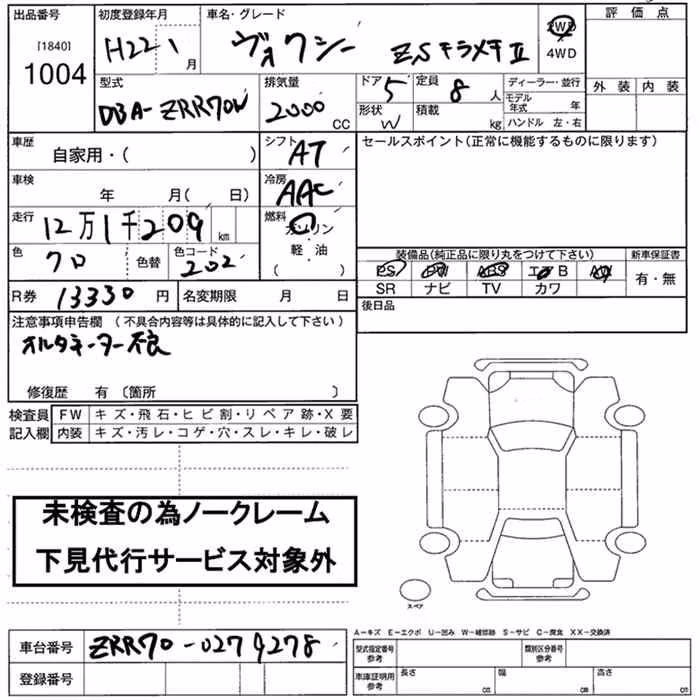 出品番号 初度登録年月 車名・グレード 評価点
[1840] H22 1 月 ヴォクシー ZS キラメキII 2WD 4WD
1004 外装 内装
型式 排気量 ドア 5 定員 8 人 ディーラー・並行
DBA-ZRR70W 2000 CC 形状 W 積載 kg モデル年式 年
ハンドル 左・右
車歴 自家用・( ) シフト AT セールスポイント(正常に機能するものに限ります)
車検 年 月( 日) 冷房 AAC
走行 12万1千209 km 燃料 ガソリン
軽油
( )
色 クロ 色替 色コード 202 装備品(純正品に限り丸をつけて下さい) 新車保証書
PS PW ABS エアB AW 有・無
R券 13330 円 名変期限 月 日 SR ナビ TV カワ
注意事項申告欄 (不具合内容等は具体的に記入して下さい) 後日品
オルタネーター不良
修復歴 有 〔箇所 〕
検査員 FW キズ・飛石・ヒビ割・リペア跡・X要
記入欄 内装 キズ・汚レ・コゲ・穴・スレ・キレ・破レ
未検査の為ノークレーム
下見代行サービス対象外
スペア
A-キズ E-エクボ U-凹み W-補修跡 S-サビ C-腐食 XX-交換済
車台番号 ZRR70-0279278 型式指定番号 参考 類別区分番号 参考
登録番号 車庫証明用 参考 長さ cm 幅 cm 高さ cm